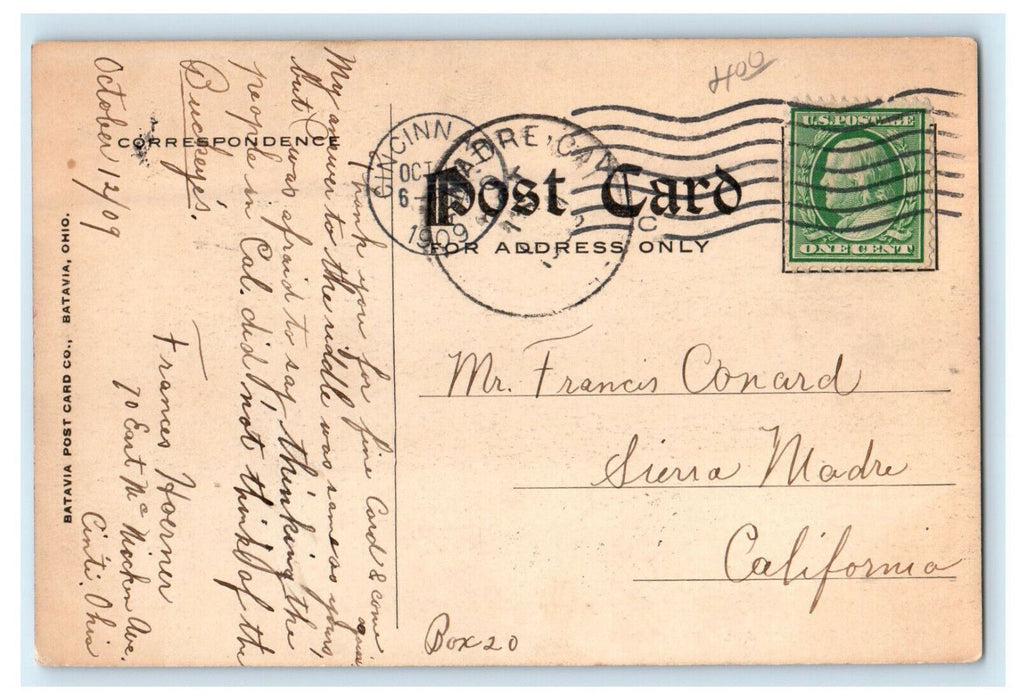 400
CORRESPONDENCE
Post Card
FOR ADDRESS ONLY
U.S. POSTAGE
ONE CENT
CINCINN
OCT
6-
1909
MADRE, CAL
REC
October 12/09
Thank you for fine Card & come again.
My answer to the riddle was same as yours,
but I was afraid to say thinking the
people in Cal. did not think of the
Buckeyes.
Frances Hoerner
70 East Mc Micken Ave.
Cinti. Ohio
Mr. Francis Conard
Sierra Madre
California
Box 20
BATAVIA POST CARD CO., BATAVIA, OHIO.